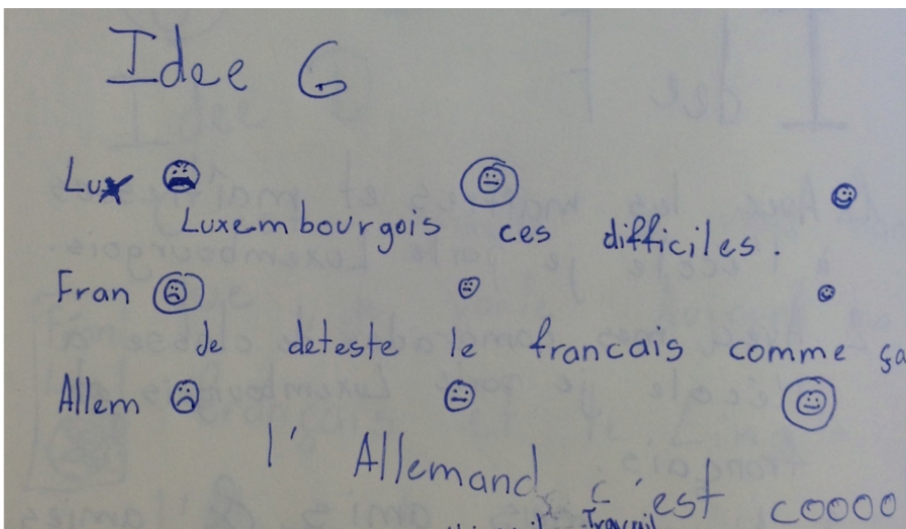 Idee G
Lux
Luxembourgois ces difficiles.
Fran
de deteste le francais comme ça
Allem
l' Allemand c'est coooo
Travail